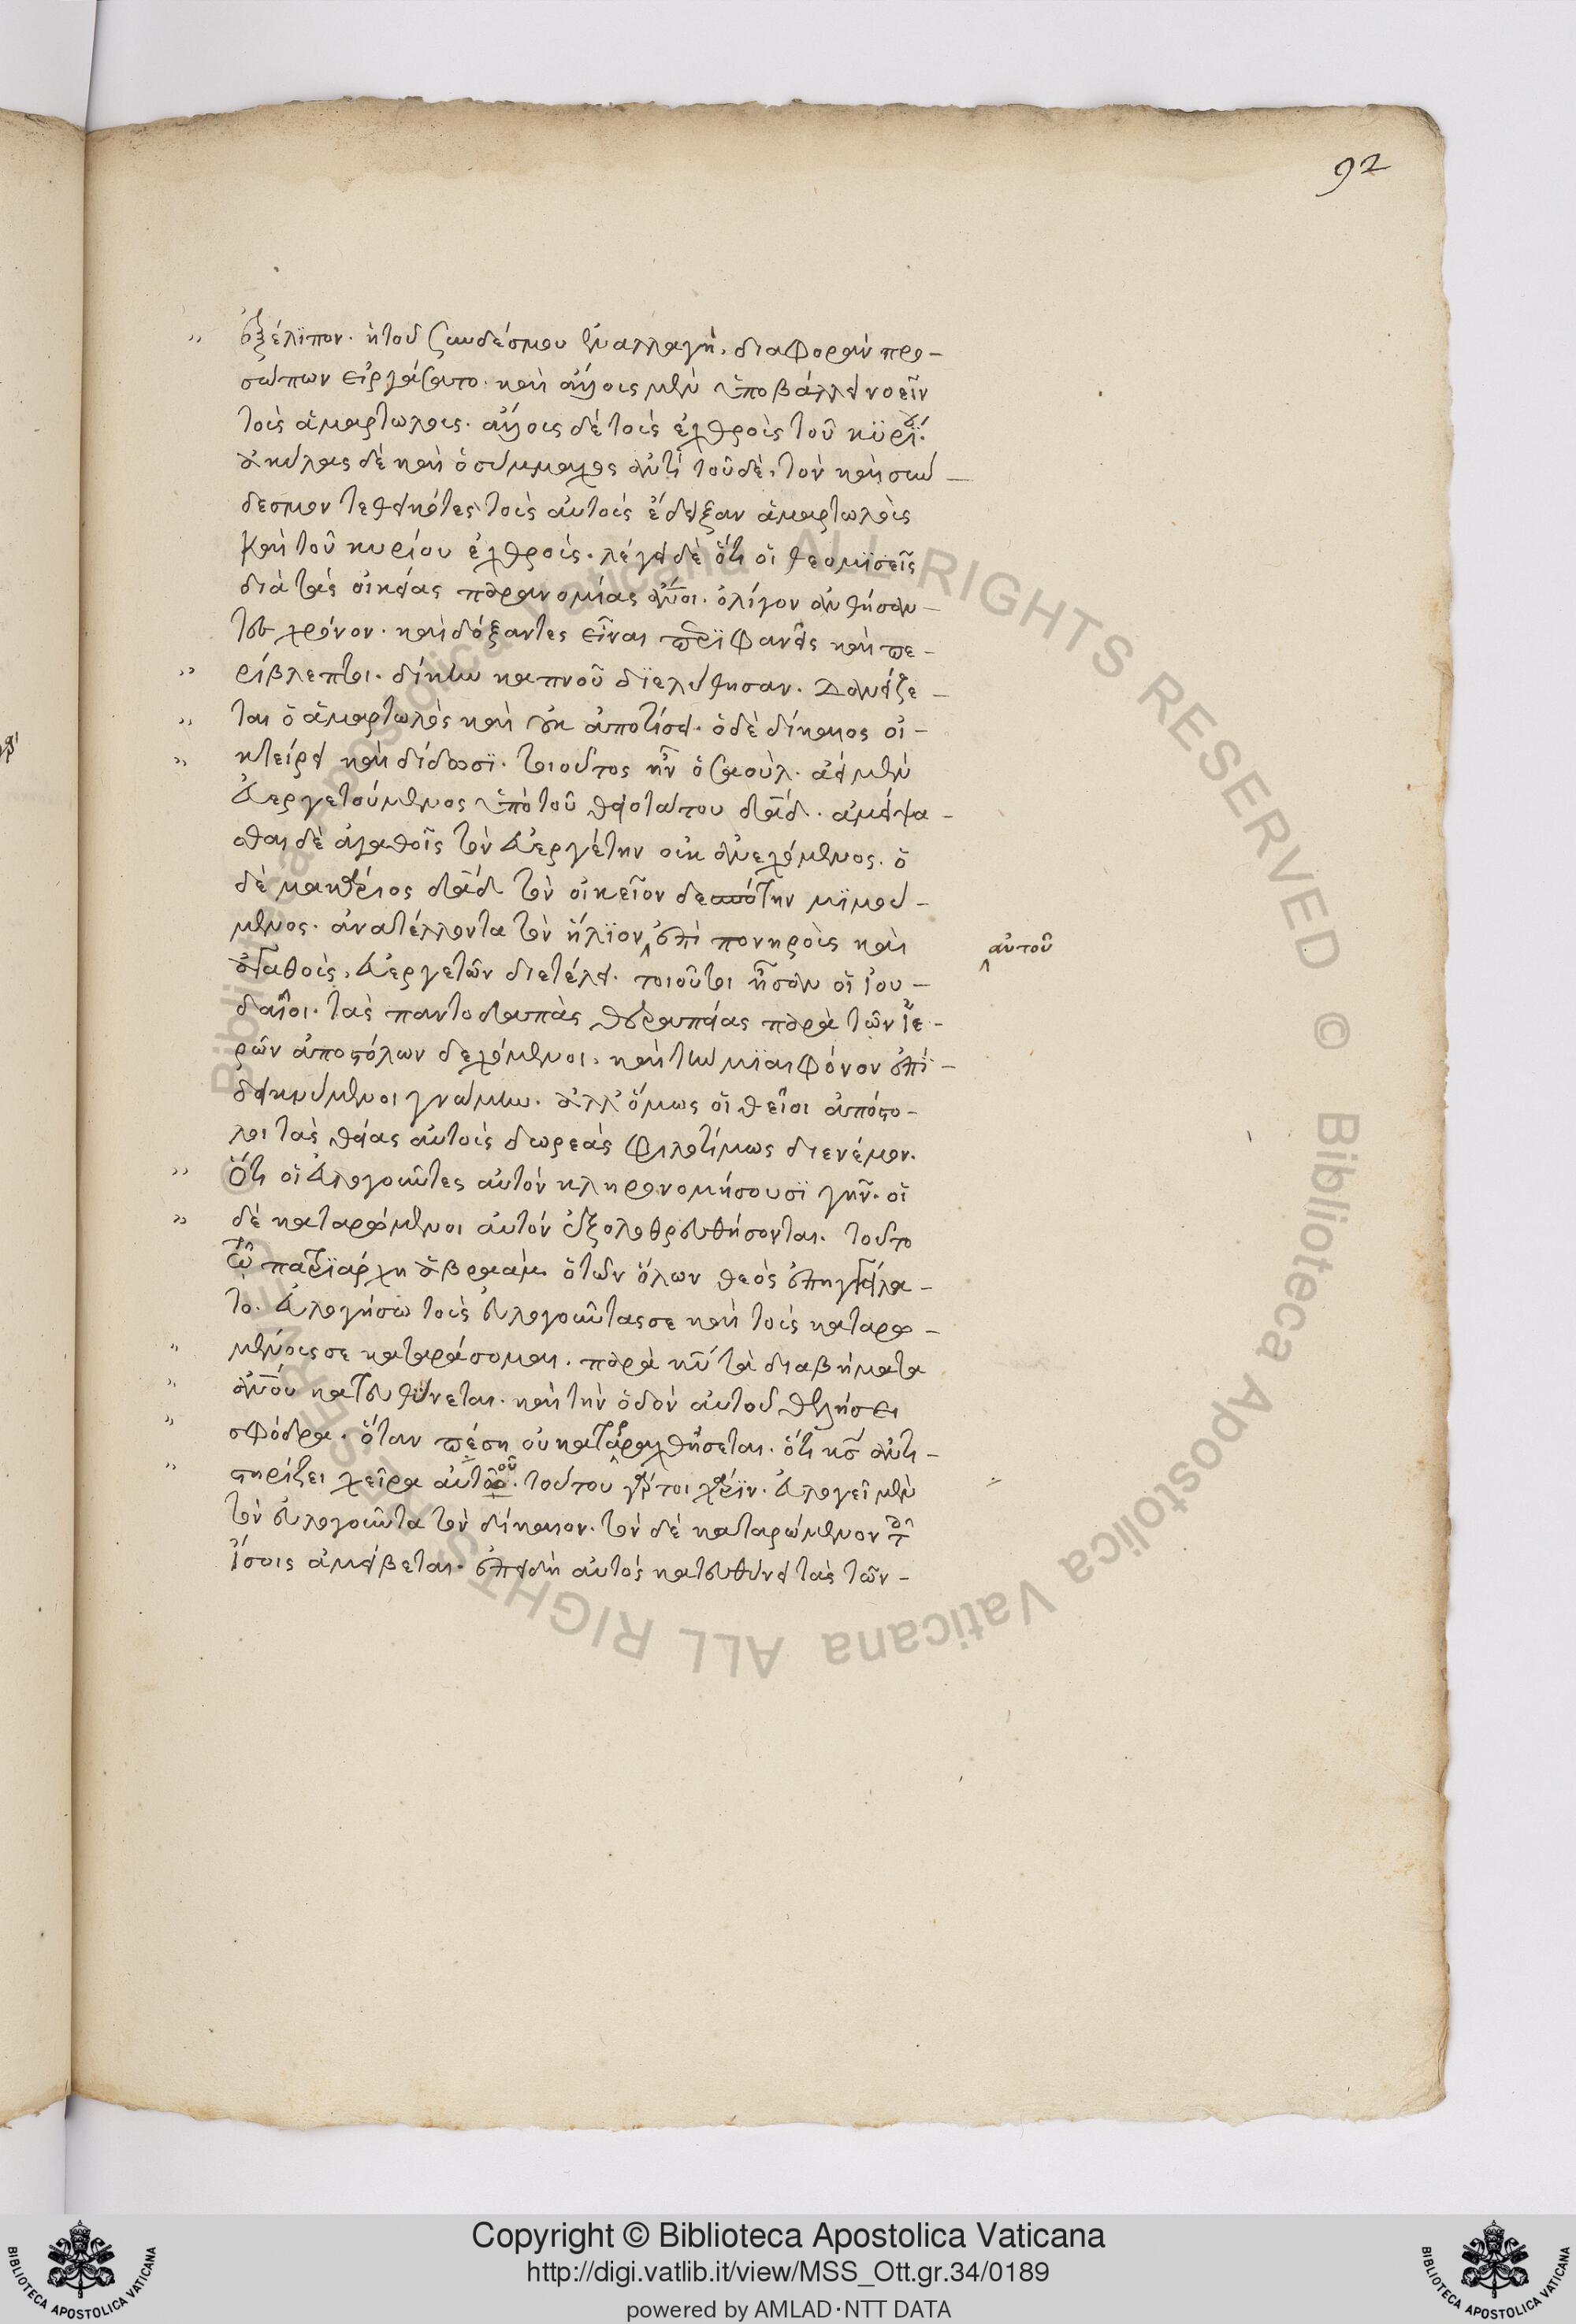 92
ἐξέλιπον. ἡ τοῦ συνδέσμου ἐναλλαγὴ, διαφορὰν προ-
σώπων εἰργάσατο. καὶ ἄλλοις μὲν ὑποβάλλει νοεῖν
τοὺς ἁμαρτωλούς. ἄλλους δὲ τοὺς ἐχθροὺς τοῦ κυρίου.
ἀκύλας δὲ καὶ ὁ σύμμαχος ἀντὶ τοῦ δὲ, τὸν καὶ σύν-
δεσμον τεθεικότες τοὺς αὐτοὺς ἔδειξαν ἁμαρτωλοὺς
καὶ τοῦ κυρίου ἐχθρούς. λέγει δὲ ὅτι οἱ θεομισεῖς
διὰ τὰς οἰκείας παρανομίας οὗτοι. ὀλίγον ἀνθήσαν-
τες χρόνον. καὶ δόξαντες εἶναι περιφανεῖς καὶ πε-
ρίβλεπτοι. δίκην καπνοῦ διελύθησαν. Δανείζε-
ται ὁ ἁμαρτωλὸς καὶ οὐκ ἀποτίσει. ὁ δὲ δίκαιος οἰ-
κτείρει καὶ δίδωσι. τοιοῦτος ἦν ὁ σαούλ. ἀεὶ μὲν
εὐεργετούμενος ὑπὸ τοῦ θειοτάτου δαδ. ἀμείψα-
σθαι δὲ ἀγαθοῖς τὸν εὐεργέτην οὐκ ἀνεχόμενος. ὁ
δὲ μακάριος δαδ τὸν οἰκεῖον δεσπότην μιμού-
μενος. ἀνατέλλοντα τὸν ἥλιον ἐπὶ πονηροὺς καὶ
ἀγαθούς, εὐεργετῶν διετέλει. τοιοῦτοι ἦσαν οἱ ἰου-
δαῖοι. τὰς παντοδαπὰς θεραπείας παρὰ τῶν ἱε-
ρῶν ἀποστόλων δεχόμενοι, καὶ τὴν μιαιφόνον ἐπι-
δεικνύμενοι γνώμην. ἀλλ' ὅμως οἱ θεῖοι ἀπόστο-
λοι τὰς θείας αὐτοῖς δωρεὰς φιλοτίμως διένεμον.
Ὅτι οἱ εὐλογοῦντες αὐτὸν κληρονομήσουσι γῆν. οἱ
δὲ καταρώμενοι αὐτὸν ἐξολοθρευθήσονται. τοῦτο
τῷ πατριάρχῃ ἀβραὰμ ὁ τῶν ὅλων θεὸς ἐπηγγείλα-
το. εὐλογήσω τοὺς εὐλογοῦντάς σε καὶ τοὺς καταρω-
μένους σε καταράσομαι. παρὰ κυ τὰ διαβήματα
ἀνου κατευθύνεται. καὶ τὴν ὁδὸν αὐτοῦ θελήσει
σφόδρα. ὅταν πέσῃ οὐ καταραχθήσεται. ὅτι κς ἀντι-
στηρίζει χεῖρα αὐτοῦ. τούτου γάρ τοι χάριν. εὐλογεῖ μὲν
τὸν εὐλογοῦντα τὸν δίκαιον. τὸν δὲ καταρώμενον τοῖς
ἴσοις ἀμείβεται. ἐπειδὴ αὐτὸς κατευθύνει τὰς τῶν-
αὐτοῦ
Copyright © Biblioteca Apostolica Vaticana
http://digi.vatlib.it/view/MSS_Ott.gr.34/0189
powered by AMLAD·NTT DATA
BIBLIOTECA APOSTOLICA VATICANA
BIBLIOTECA APOSTOLICA VATICANA
© Biblioteca Apostolica Vaticana ALL RIGHTS RESERVED © Biblioteca Apostolica Vaticana ALL RIGHTS RESERVED